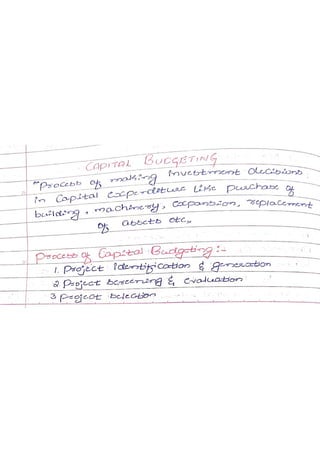 CAPITAL BUDGETING
"Process of making investment decisions
in Capital expenditure like purchase of
building, machinery, expansion, replacement
of assets etc,,
Process of Capital Budgeting:-
1. Project identification & generation
2 Project screening & evaluation
3 Project selection